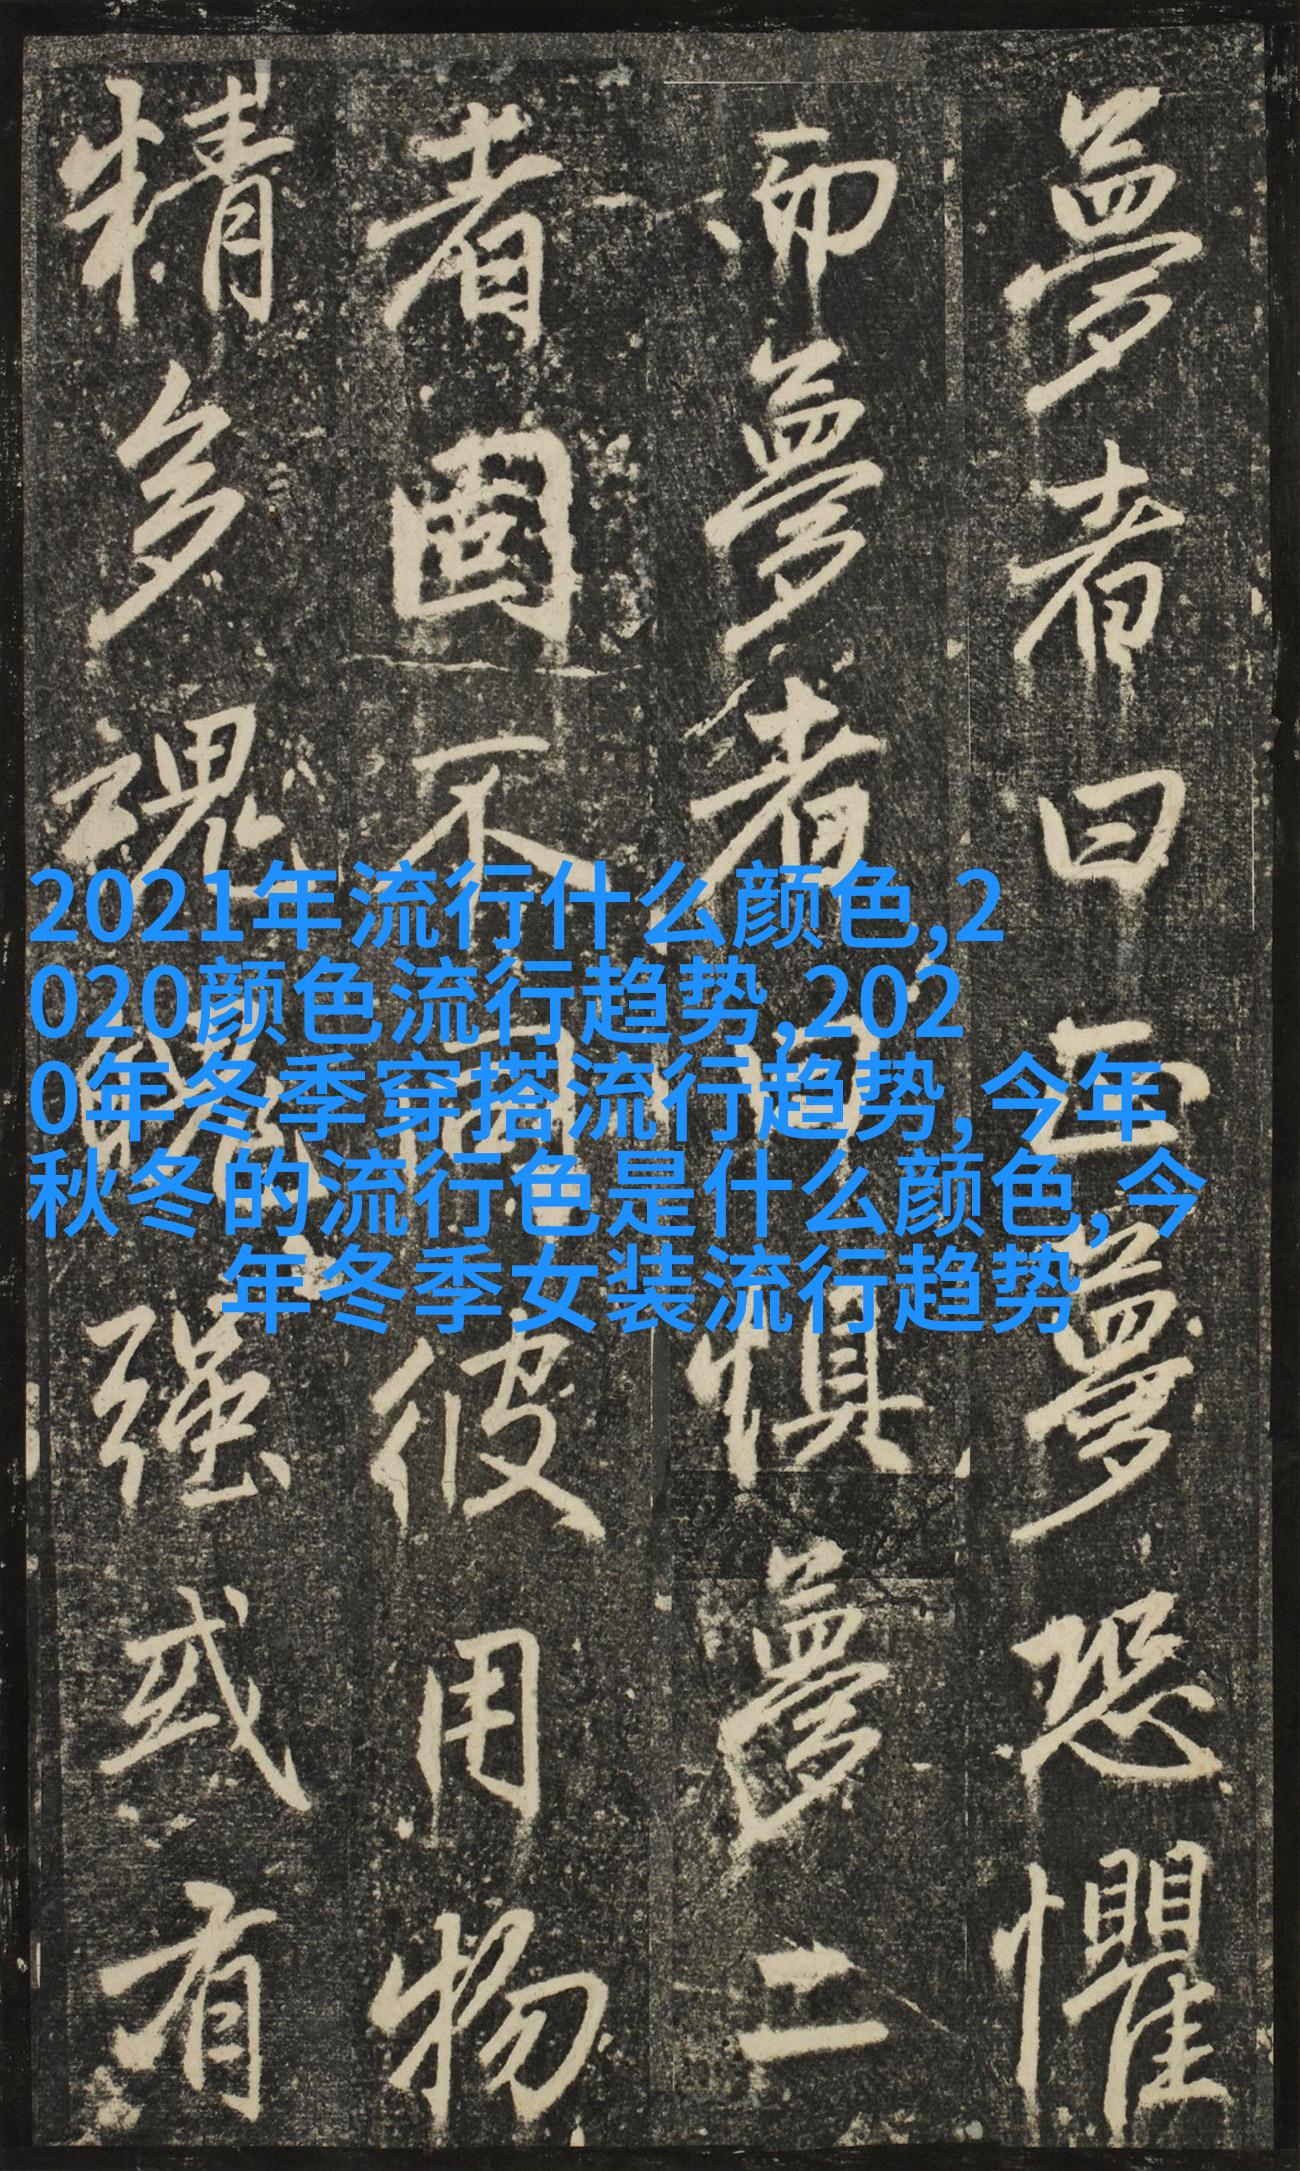 夢者曰正夢恐懼
而夢者曰懼夢二
者固不同彼用物
精多魂魄强或有
2021年流行什么颜色,2
020颜色流行趋势,202
0年冬季穿搭流行趋势, 今年
秋冬的流行色是什么颜色,今
年冬季女装流行趋势